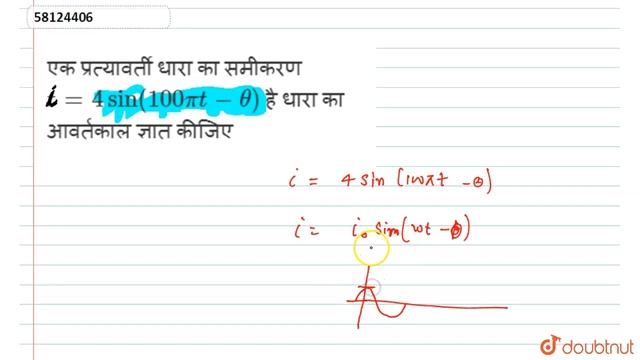 58124406
एक प्रत्यावर्ती धारा का समीकरण
i = 4 sin(100πt − θ) है धारा का
आवर्तकाल ज्ञात कीजिए
i = 4 sin (100πt - θ)
i = i₀ sin(wt - ϕ)
doubtnut